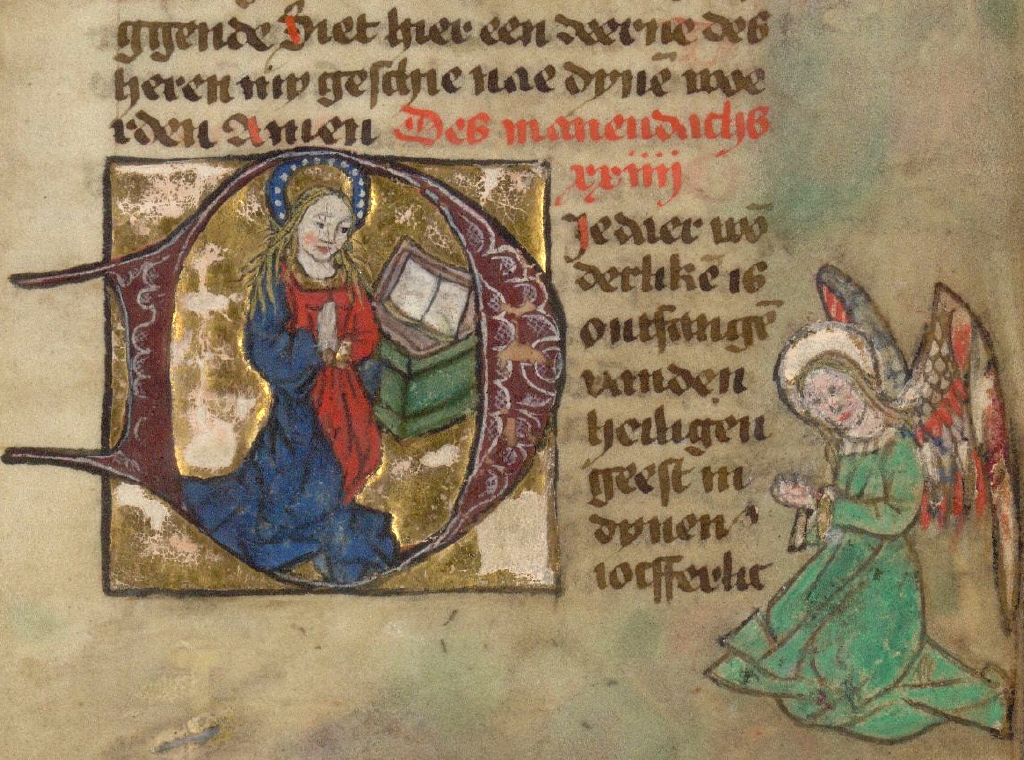 ggende Siet hier een deerne des
heren my geschie nae dynē woe
rden Amen Des manendachs
xxiiij
Jedaer wō
derlikē is
ontfangē
vanden
heiligen
geest in
dynen
iofferlic